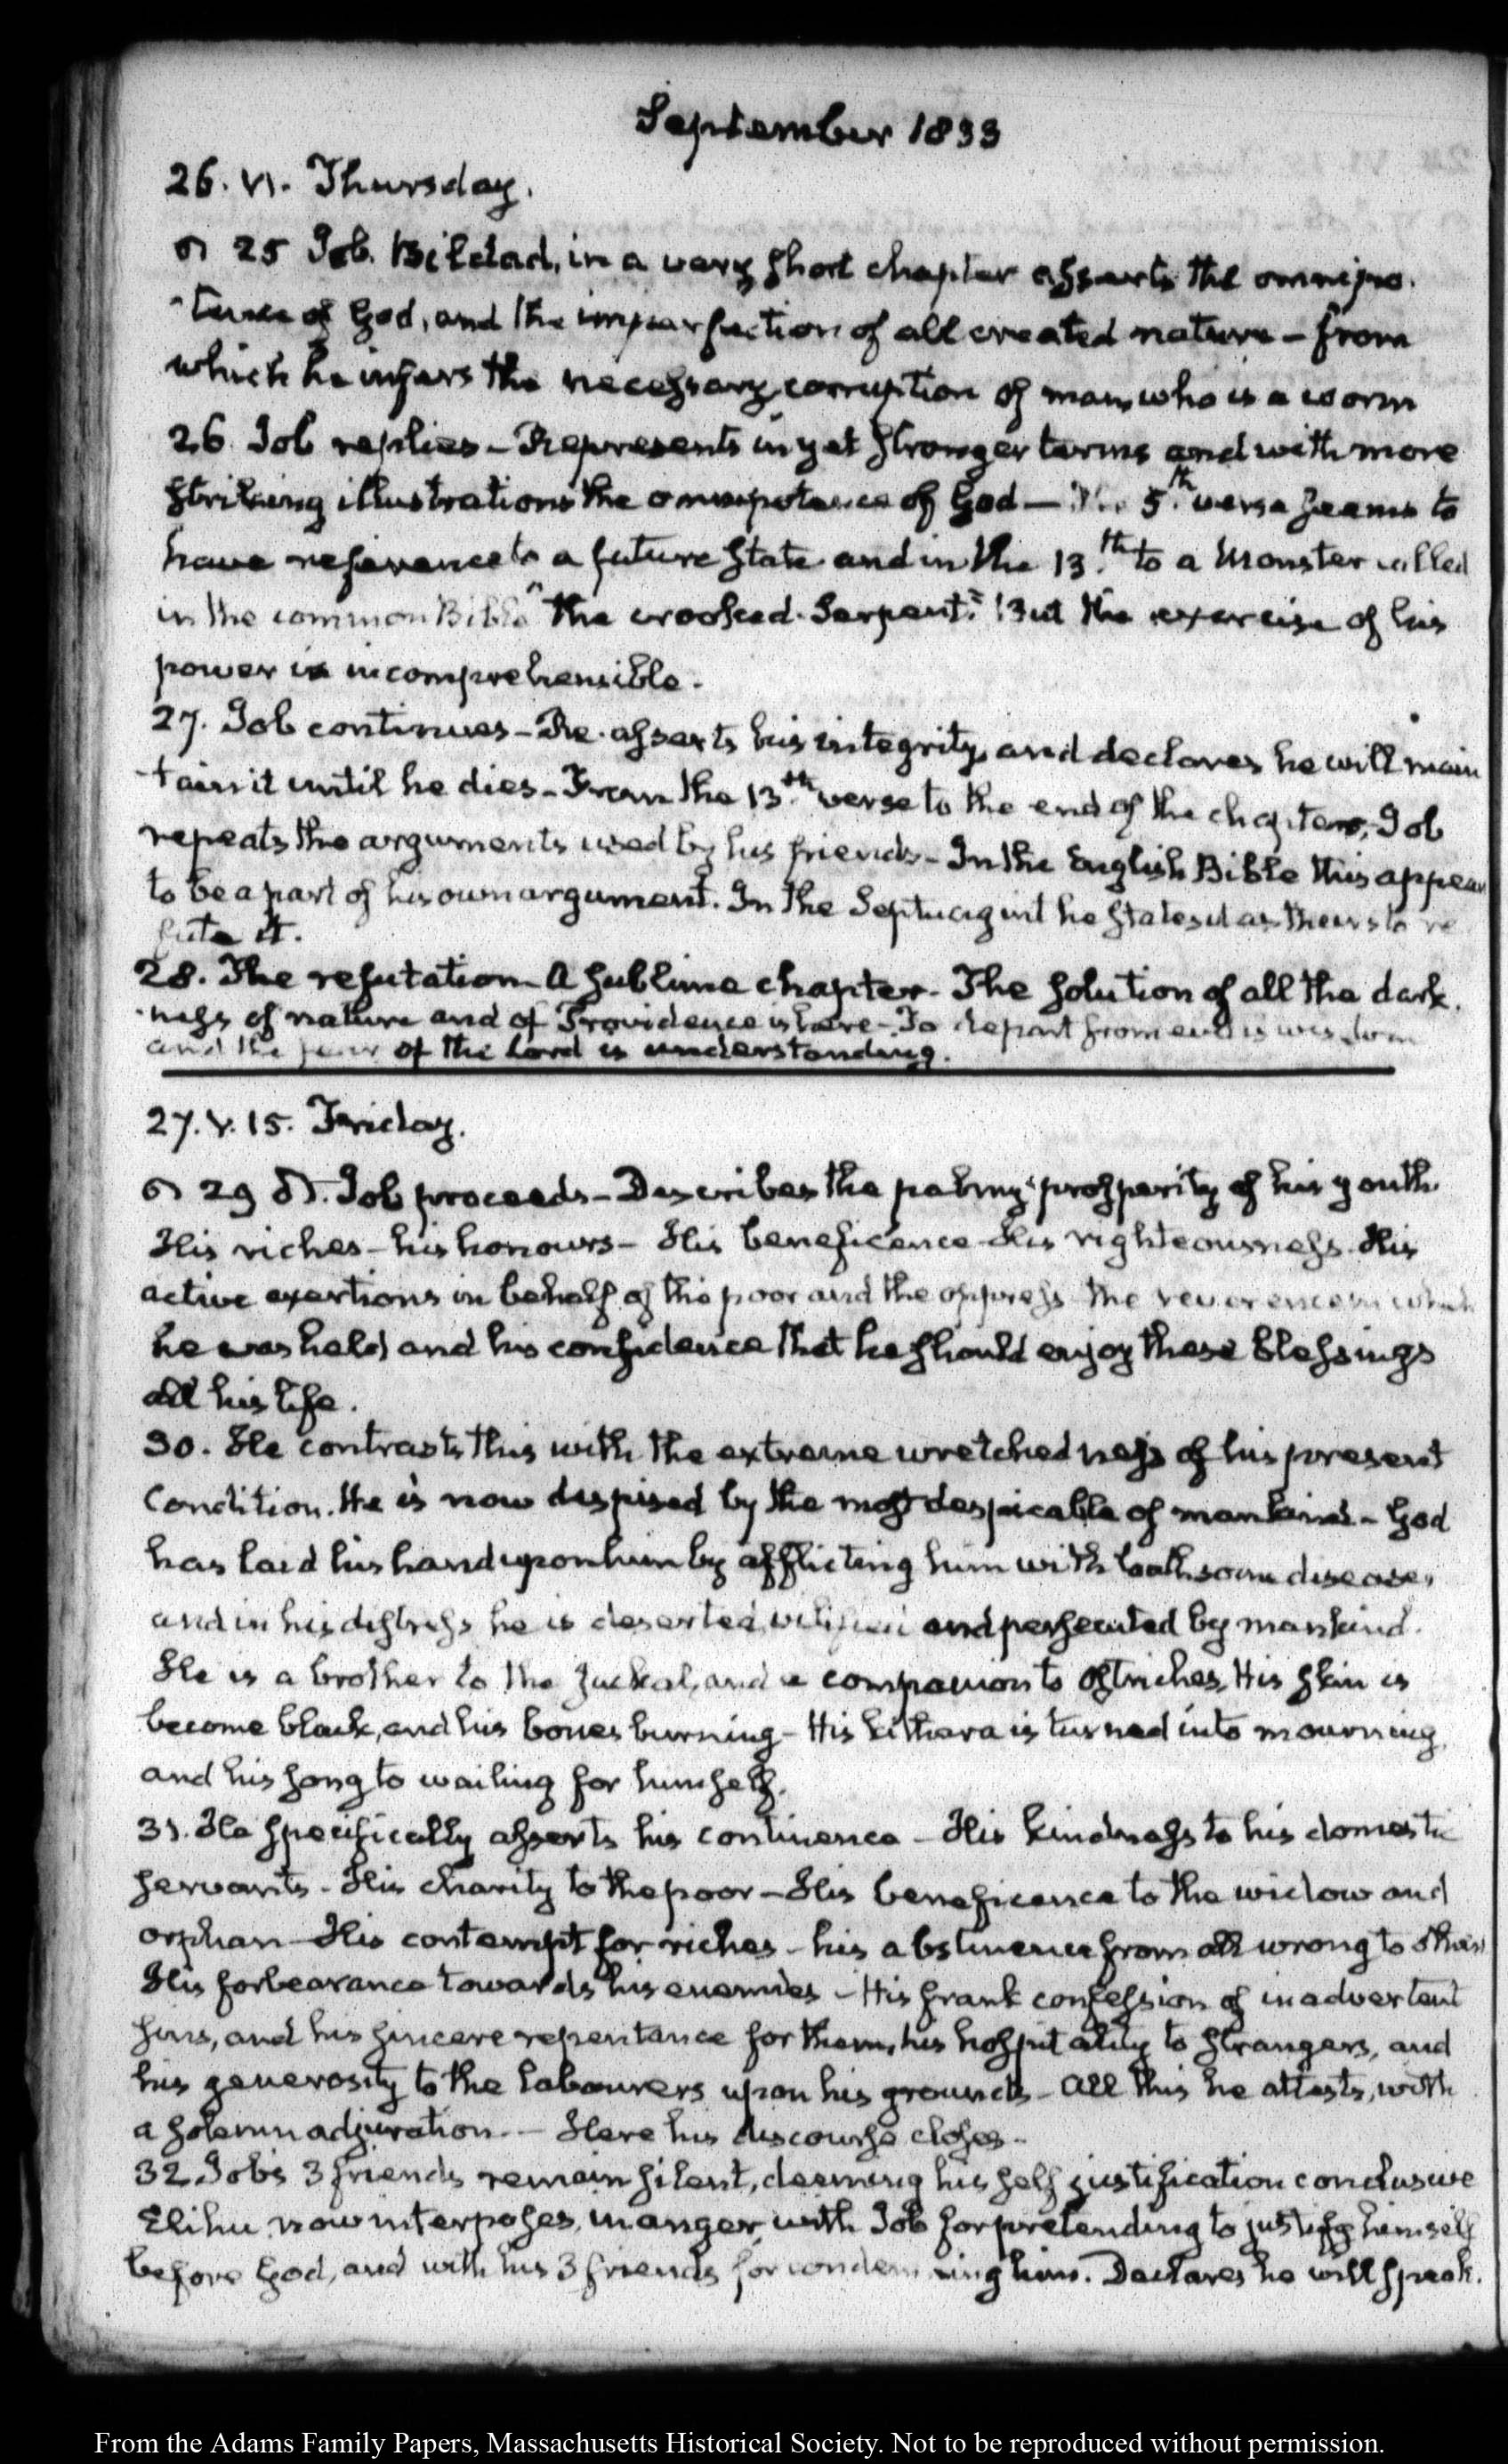 September 1833
26. VI. Thursday.
25 Job. Bildad, in a very short chapter asserts the omnipo-
-tence of God, and the imperfection of all created nature – from
which he infers the necessary corruption of man, who is a worm
26. Job replies – Represents in yet stronger terms and with more
striking illustrations the omnipotence of God — The 5.th verse seems to
have reference to a future state and in the 13.th to a Monster called
in the common Bible "the crooked Serpent." But the exercise of his
power is incomprehensible.
27. Job continues – Re-asserts his integrity, and declares he will main
-tain it until he dies – From the 13.th verse to the end of the chapter, Job
repeats the arguments used by his friends – In the English Bible this appears
to be a part of his own argument. In the Septuagint he states it as theirs to re
fute it.
28. The refutation – A sublime chapter – The solution of all the dark-
-ness of nature and of Providence is here – To depart from evil is wisdom
and the fear of the Lord is understanding.
27. V. 15. Friday.
29 Job proceeds – Describes the palmy prosperity of his youth
His riches – his honours – His beneficence – His righteousness – His
active exertions in behalf of the poor and the oppress the reverence in which
he was held and his confidence that he should enjoy these blessings
all his life.
30. He contrasts this with the extreme wretchedness of his present
Condition. He is now despised by the most despicable of mankind – God
has laid his hand upon him by afflicting him with loathsome disease,
and in his distress he is deserted, vilified and persecuted by mankind.
He is a brother to the Jackal, and a companion to ostriches, His skin is
become black, and his bones burning – His kithara is turned into mourning,
and his song to wailing for himself.
31. He specifically asserts his continence – His kindness to his domestic
servants – His charity to the poor – His beneficence to the widow and
orphan – His contempt for riches – his abstinence from all wrong to others
His forbearance towards his enemies – His frank confession of inadvertent
sins, and his sincere repentance for them, his hospitality to strangers, and
his generosity to the labourers upon his grounds – All this he attests, with
a solemn adjuration – Here his discourse closes –
32 Job's 3 friends remain silent, deeming his self justification conclusive
Elihu now interposes, in anger with Job for pretending to justify himself
before God, and with his 3 friends for condemning him. Declares he will speak.
From the Adams Family Papers, Massachusetts Historical Society. Not to be reproduced without permission.